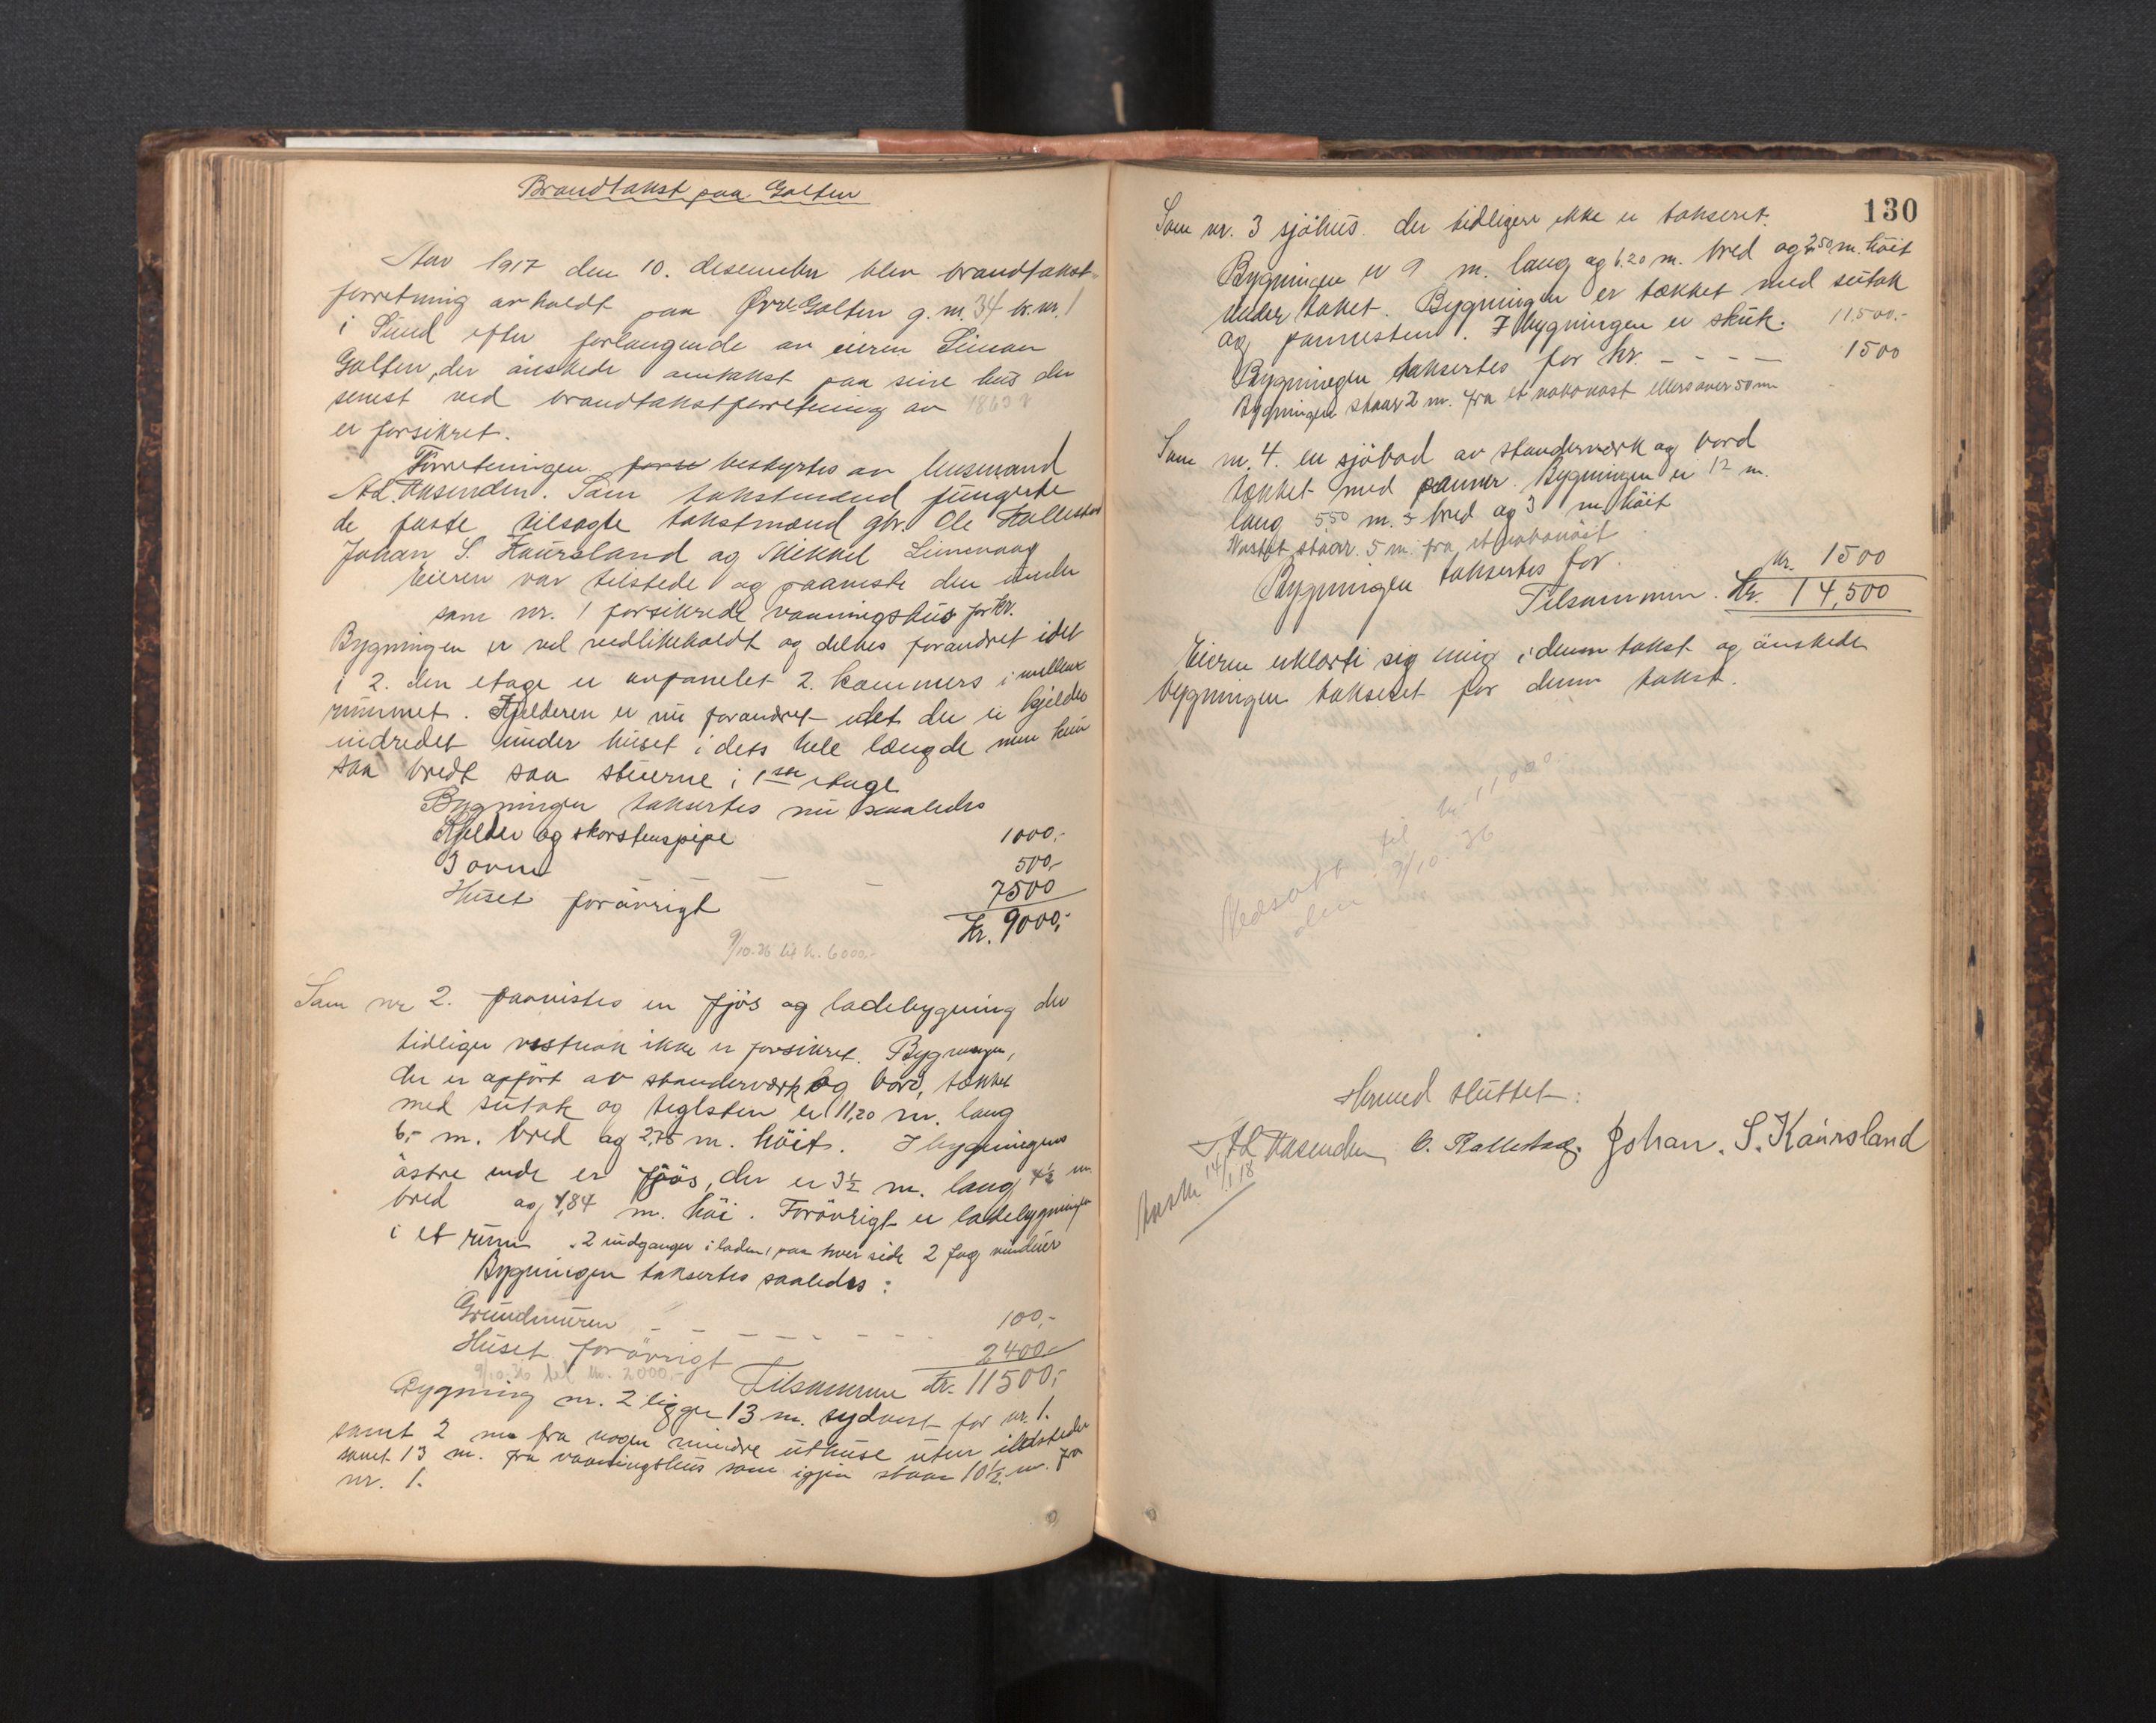 Brandtakst paa Golten
Aar 1917 den 10. desember blev brandtakst-
forretning avholdt paa Øvre Golten g. nr. 34 br. nr. 1
i Sund efter forlangende av eieren Simon
Golten, der ønskede omtakst paa sine hus der
senest ved brandtakstforretning av
er forsikret.
Forretningen forse bestyrtes av lensmand
Ad. Aasenden. Som takstmænd fungerte
de faste tilsagte takstmænd gbr. Ole Kallestad
Johan S. Kaursland og Mikkel Limmaag
Eieren var tilstede og paaviste den under
som nr. 1 forsikrede vaaningshus for kr.
Bygningen er vel vedlikeholdt og delvis forandret idet
i 2. den etage er avpanelet 2. kammers i mellem
rummet. Kjelderen er nu forandret idet der er kjelder
indredet under huset i dets hele længde men kun
saa bredt saa stuerne i 1ste etage
Bygningen taksertes nu saaledes
Kjelder og skorstenspipe 1000,-
3 ovne 500,-
Huset forøvrigt 7500
Kr. 9000,-
9/10.36 til kr. 6000,-
Som nr 2. paavistes en fjøs og ladebygning der
tidliger vistnok ikke er forsikret. Bygningen,
der er opført av standerværk og bord, tækket
med sutak og teglsten er 11,20 m. lang
6,- m. bred og 2,75 m. høit. I bygningens
østre ende er fjøs, der er 3½ m. lang 4½ m.
bred og 1,84 m. høi. Forøvrigt er ladebygningen
i et rum. 2 indganger i laden, paa hver side 2 fag vinduer
Bygningen taksertes saaledes:
Grundmuren 100,-
Huset forøvrigt 2400,-
9/10.36 til kr. 2000,-
Tilsammen kr. 11500,-
Bygning nr. 2 ligger 13 m. sydvest for nr. 1.
samt 2 m fra nogen mindre uthuse uten ildsteder
samt 13 m. fra vaaningshus som igjen staar 10½ m. fra
nr. 1.
130
Som nr. 3 sjøhus. der tidligere ikke er takseret.
Bygningen er 9 m. lang og 6.20 m. bred og 2,50 m. høit
under taket. Bygningen er tækket med sutak
og pannesten. I bygningen er skuk. 11,500.-
Bygningen taksertes for kr. - - - - 1500
Bygningen staar 2 m. fra et nabonøst ellers over 50 m
Som nr. 4. en sjøbod av standerværk og bord
tækket med panner. Bygningen er 12 m.
lang 5,50 m. bred og 3 m høit
Nøstet staar. 5 m. fra et nabonøst
Bygningen taksertes for. kr. 1500
Tilsammen. Kr. 14,500
Eieren erklærte sig enig i denne takst og ønskede
bygningen takseret for denne takst.
Nedsatt til kr. 11000.
den 9/10. 36
Hermed sluttet:
Ad Aasenden O. Kallestad. Johan. S. Kaursland
14/1 18